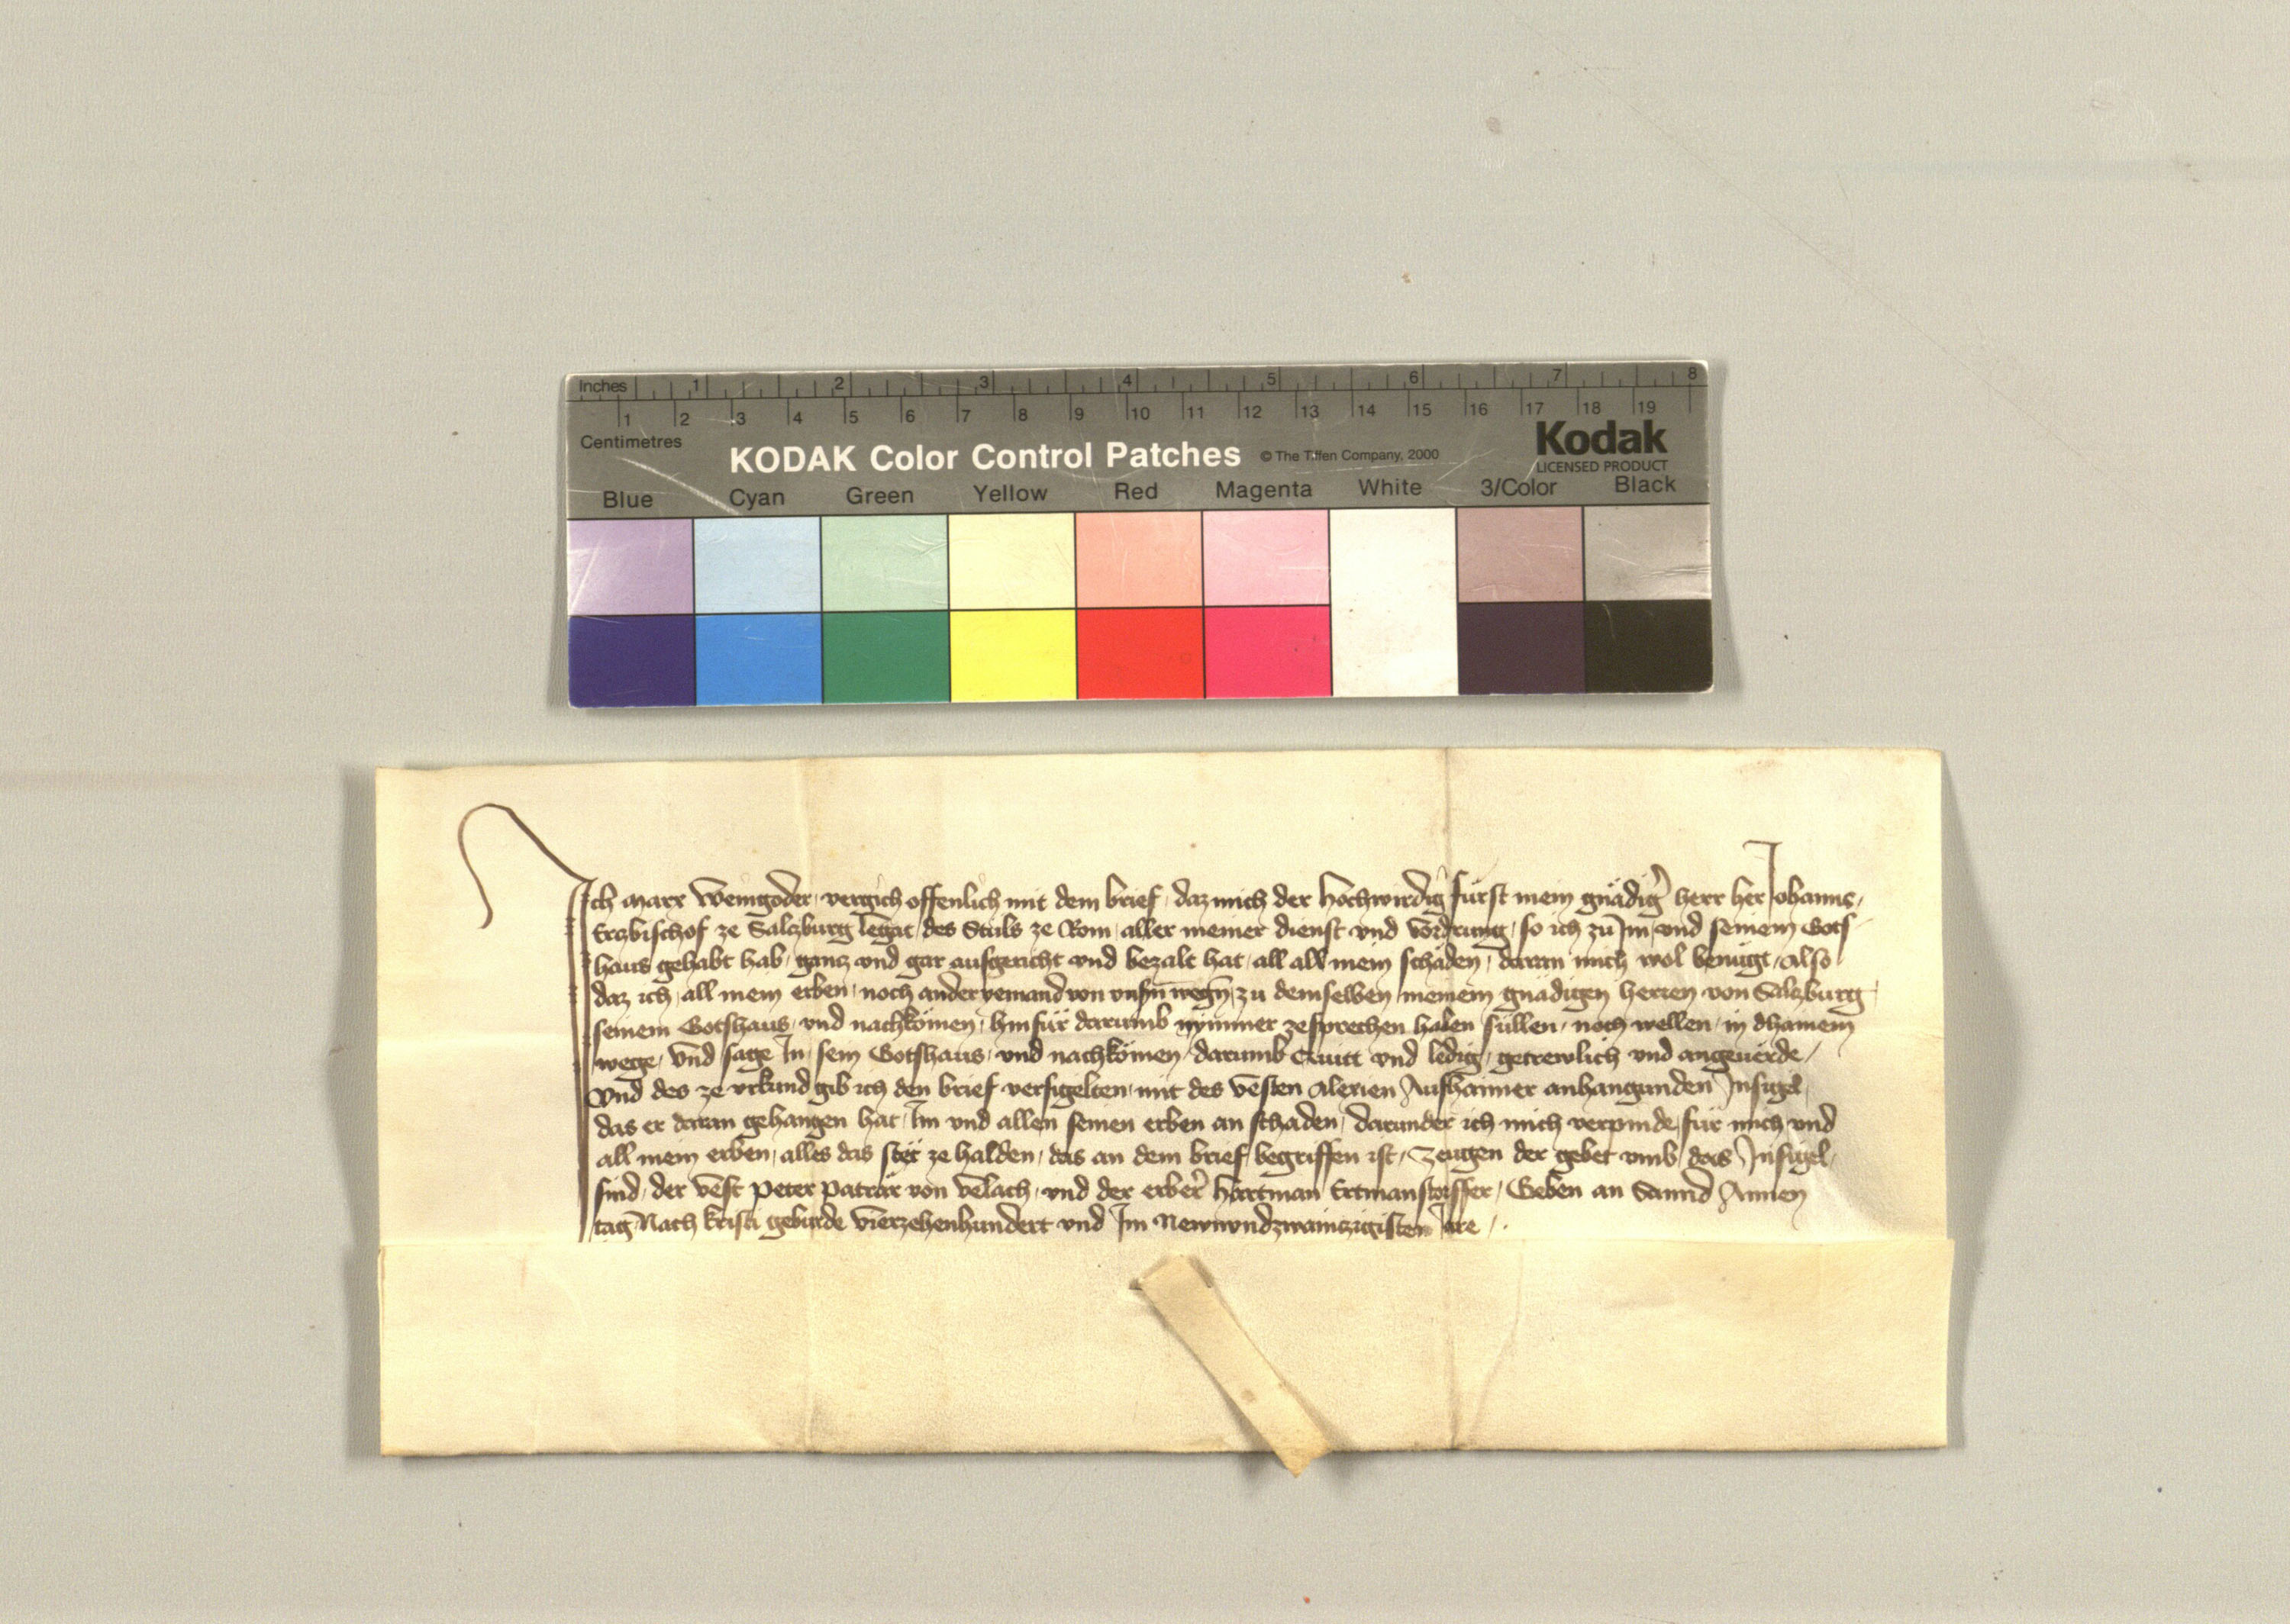 Inches 1 2 3 4 5 6 7 8
1 2 3 4 5 6 7 8 9 10 11 12 13 14 15 16 17 18 19
Centimetres
KODAK Color Control Patches © The Tiffen Company, 2000
Kodak
LICENSED PRODUCT
Blue Cyan Green Yellow Red Magenta White 3/Color Black
Ich Marx Weingoder, vergich offenlich mit dem brief, daz mich der hochwirdig fürst mein gnädig herr her Johanns,
Erczbischof ze Salczburg legat des Stuls ze Rom, aller meiner dienst vnd vordrung, so ich zu Im, vnd seinem Gots
haus gehabt hab, gancz vnd gar ausgericht vnd beczalt hat, all mein schäden, daran mich wol benügt, also
daz ich, all mein erben, noch ander yemand von vnsn wegn, zu demselben meinem gnädigen herren von Salczburg
seinem Gotshaus, vnd nachkömen, hinfür darumb nymmer zesprechen haben süllen, noch wellen, in dhainem
wege, Vnd sage In, sein Gotshaus, vnd nachkömen, darumb Quitt vnd ledig, getrewlich vnd angeuerde,
Vnd des ze vrkund gib ich den brief versigelten, mit des vesten Alexien Aufhaimer anhangunden Insigel,
das er daran gehangen hat, Im vnd allen seinen erben an schaden, darunder ich mich verpinde, für mich vnd
all mein erben, alles das stët ze halden, das an dem brief begriffen ist, Zeugen der gebet vmb das Insigel,
sind, der vest Peter von Velach, vnd der erber Hartman Ertmanstorffer, Geben an Sannd Annen
tag Nach kristi geburde Vierzehenhundert vnd Im Newnvndzwainczigisten Jare